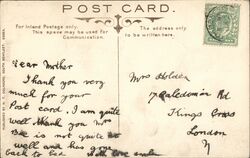 POST CARD.
For Inland Postage only.
This space may be used for
Communication.
The address only
to be written here.
Dear Mother
Thank you very
much for your
Post card. I am quite
well thank you
is not quite so
well and has gone
back to bed with love
Mrs Holden
7 Caledonian Rd
Kings Cross
London
N